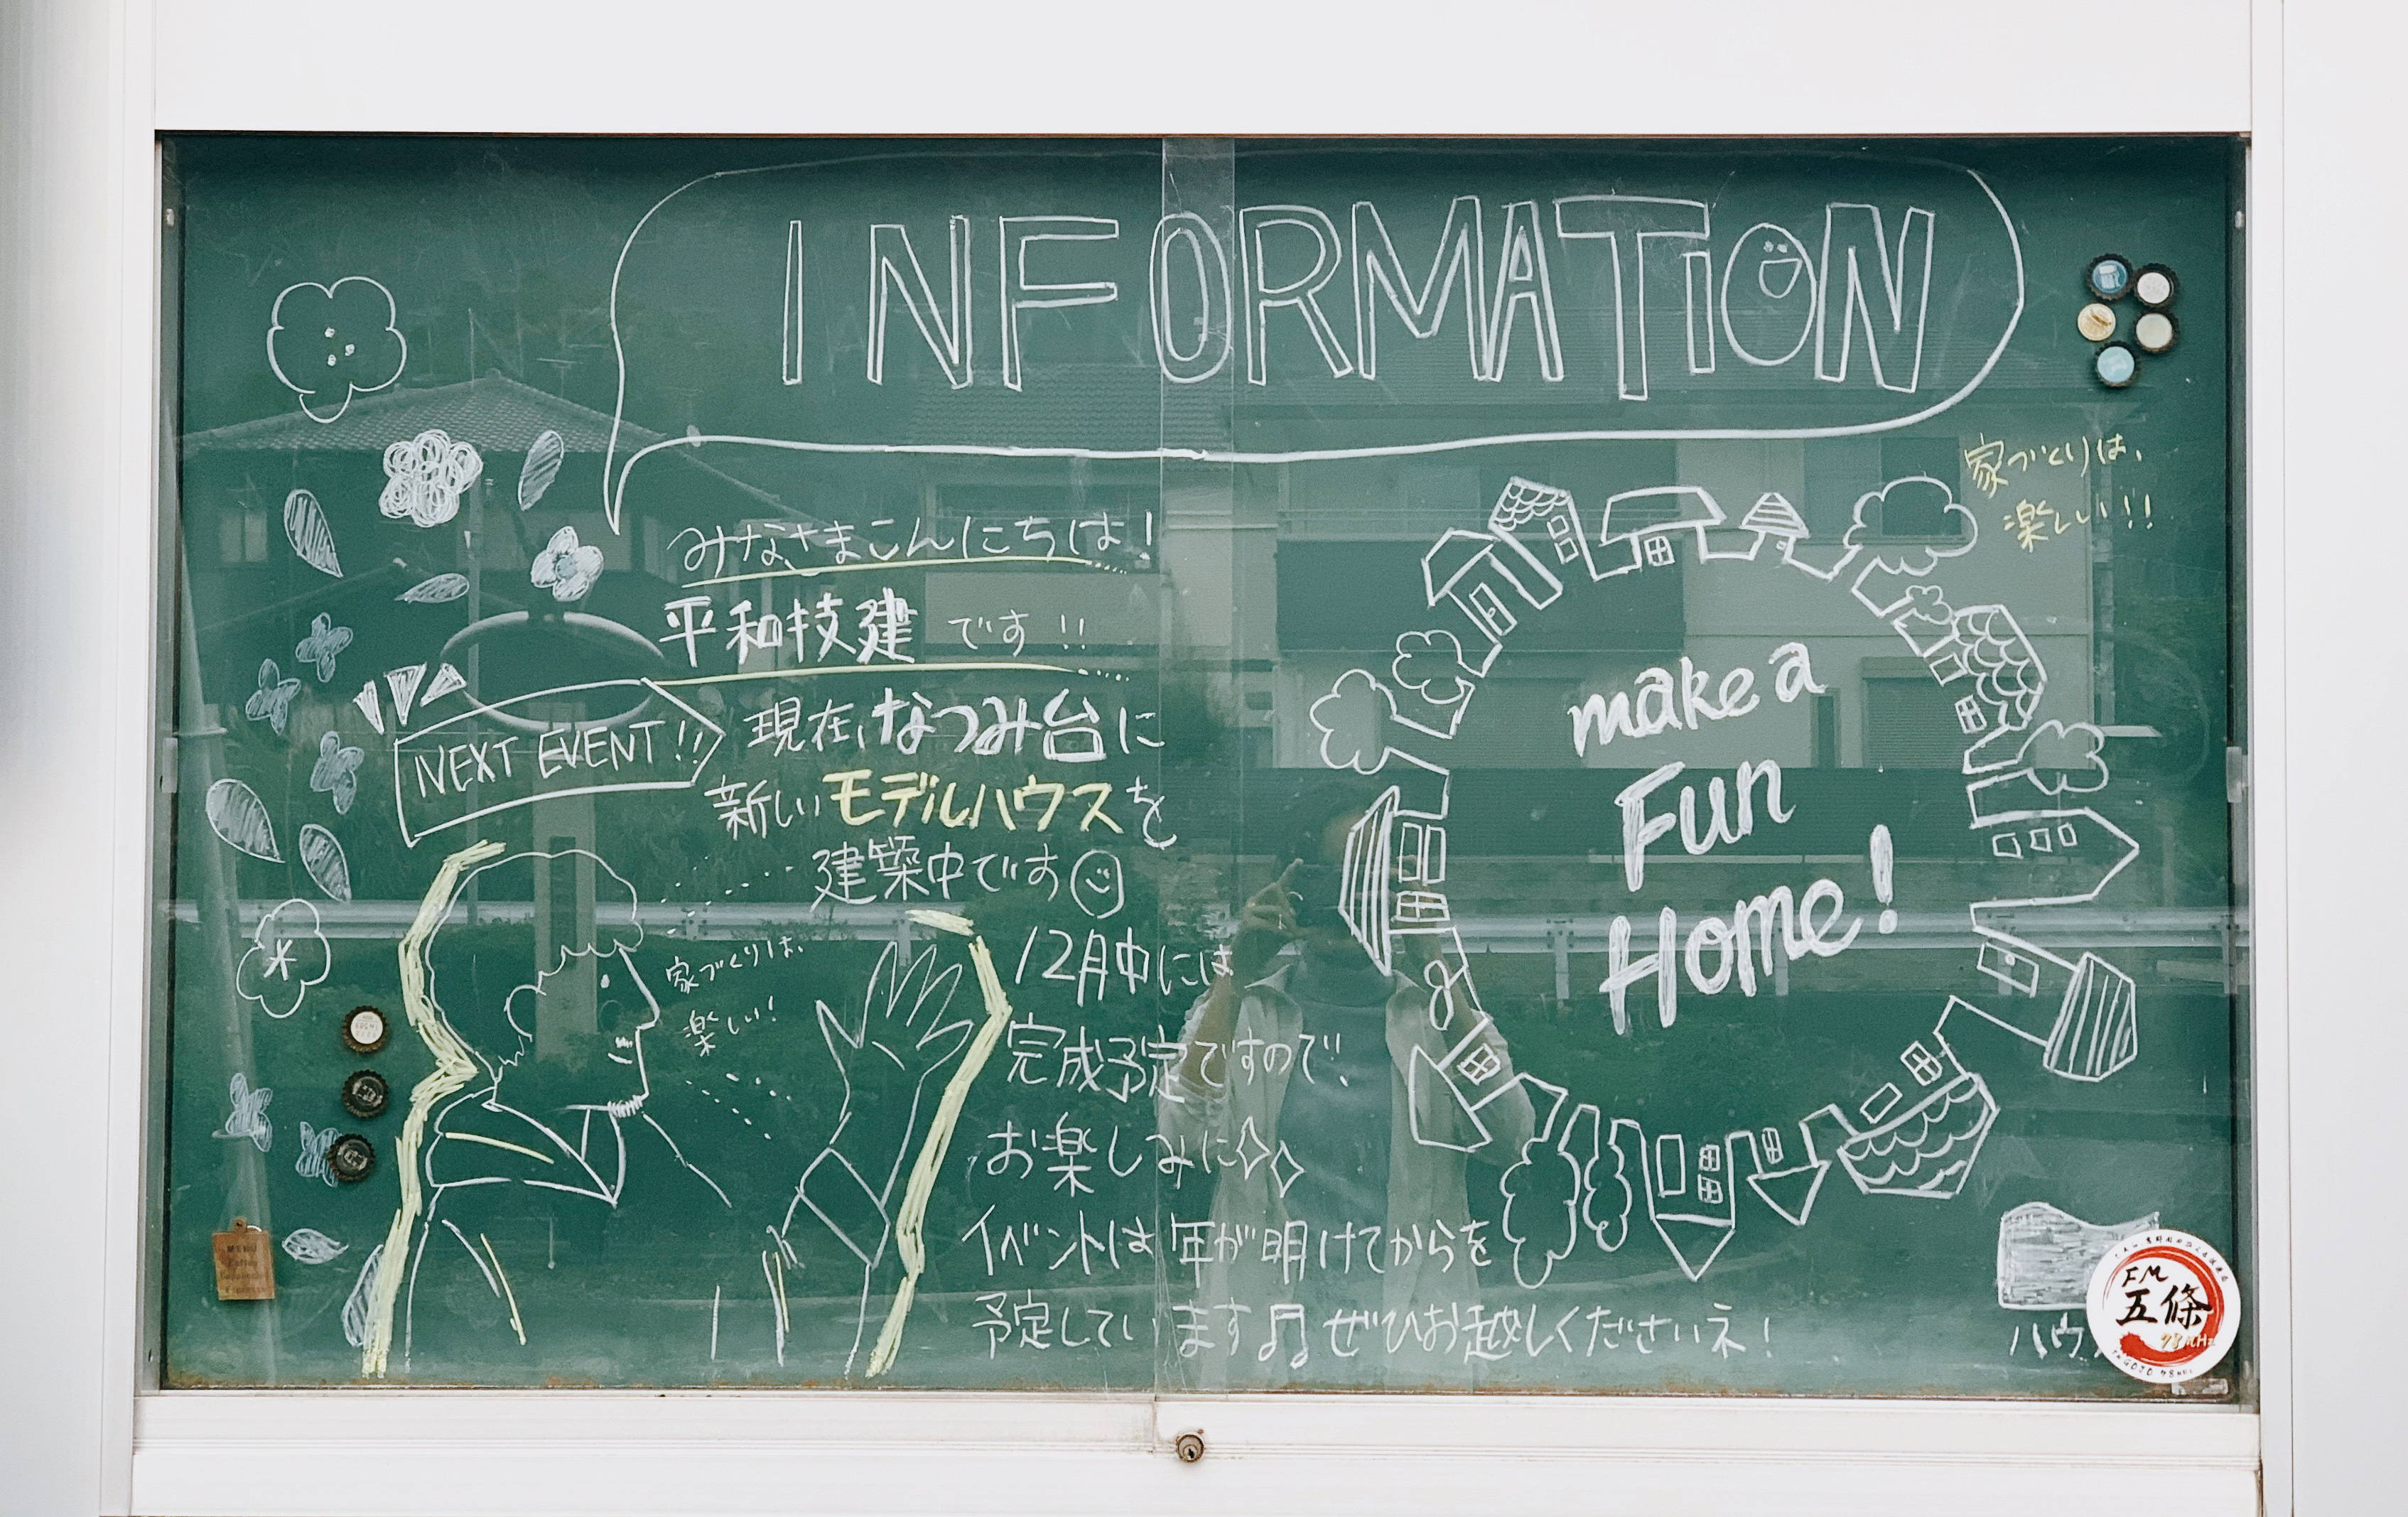 INFORMATiON
みなさまこんにちは!
平和技建 です!!
NEXT EVENT!!
現在、なつみ台に
新しいモデルハウスを
建築中です
12月中には
完成予定ですので!
お楽しみに
イベントは年が明けてからを
予定しています♫ ぜひお越しくださいネ!
家づくりは、
楽しい!
家づくりは、
楽しい!!
make a
Fun
Home!
MENU
Coffee
FM
五條
78MHz
FM GOJO 78MHz
ハウ